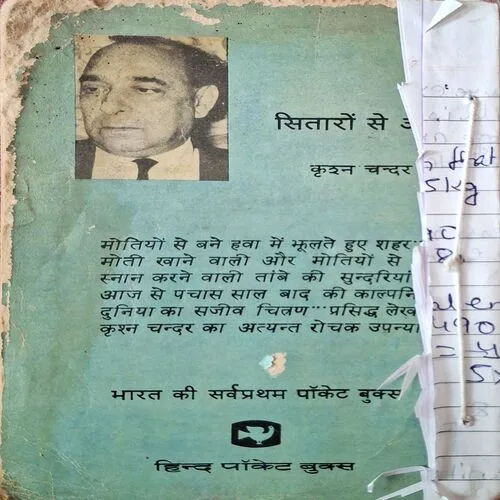 सितारों से
कृश्न चन्दर
मोतियों से बने हवा में झूलते हुए शहर
मोती खाने वाली और मोतियों से
स्नान करने वाली तांबे की सुन्दरियां
आज से पचास साल बाद की काल्पनि
दुनिया का सजीव चित्रण···प्रसिद्ध लेख
कृश्न चन्दर का अत्यन्त रोचक उपन्या
भारत की सर्वप्रथम पॉकेट बुक्स
हिन्द पॉकेट बुक्स
5kg